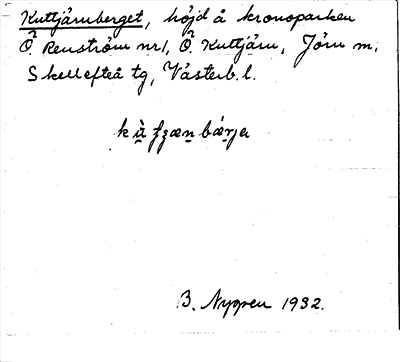 Kuttjärnberget, höjd å kronoparken
Ö. Renström nr 1, Ö. Kuttjärn, Jörn m;
Skellefteå tg, Västerb. l.
B. Nygren 1932.